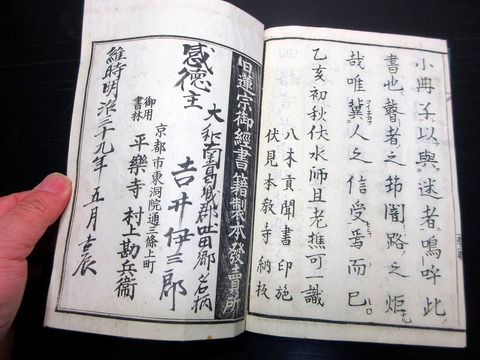 小冊子以與迷者嗚呼此
書也瞽者之節闇路之炬
哉唯冀人之信受焉而已
乙亥初秋伏水師且老樵可一識
八木貢聞書印施
伏見本教寺納板
日蓮宗御經書籍製本發賣所
感德主
大和南葛城郡吐田鄉名柄
吉井伊三郎
京都市東洞院通三條上町
御用書林
平樂寺 村上勘兵衞
維時明治二十九年 五月吉辰